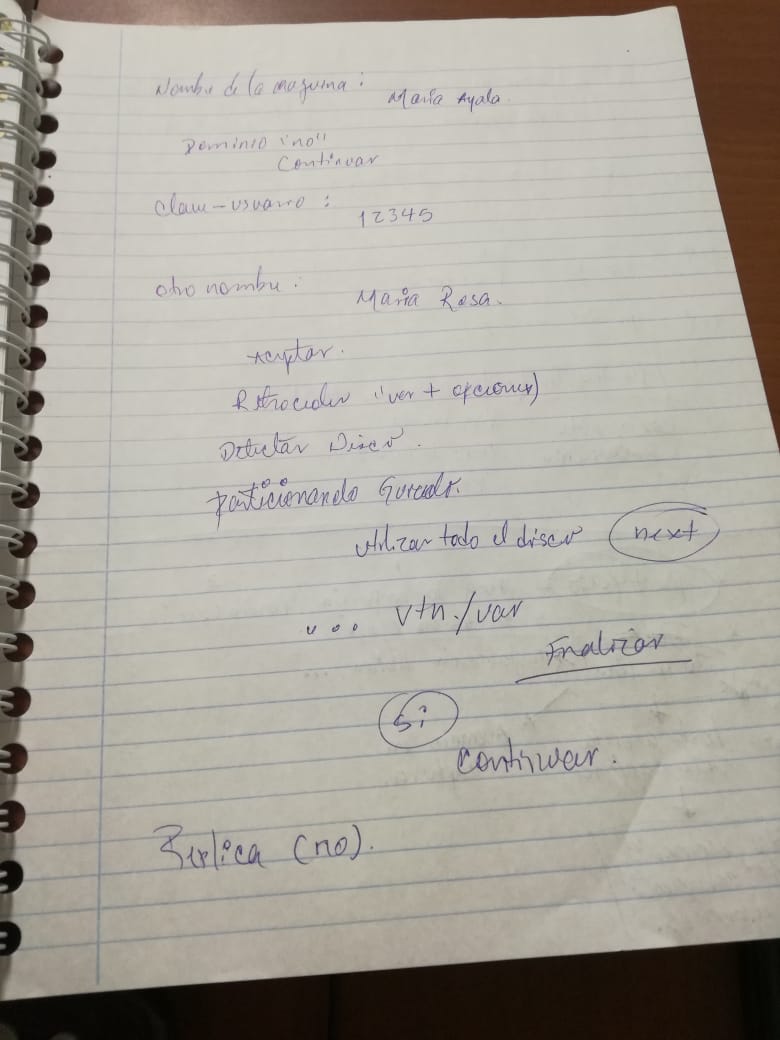 Nombre de la maquina: Maria Ayala.
Dominio "no"
Continuar
Clave-usuario: 12345
otro nombre: Maria Rosa.
Aceptar.
Retroceder "ver + opciones)
Detectar Disco.
particionando Guiado.
utilizar todo el disco next
... /var
Finalizar
Si
continuar.
Replica (no).